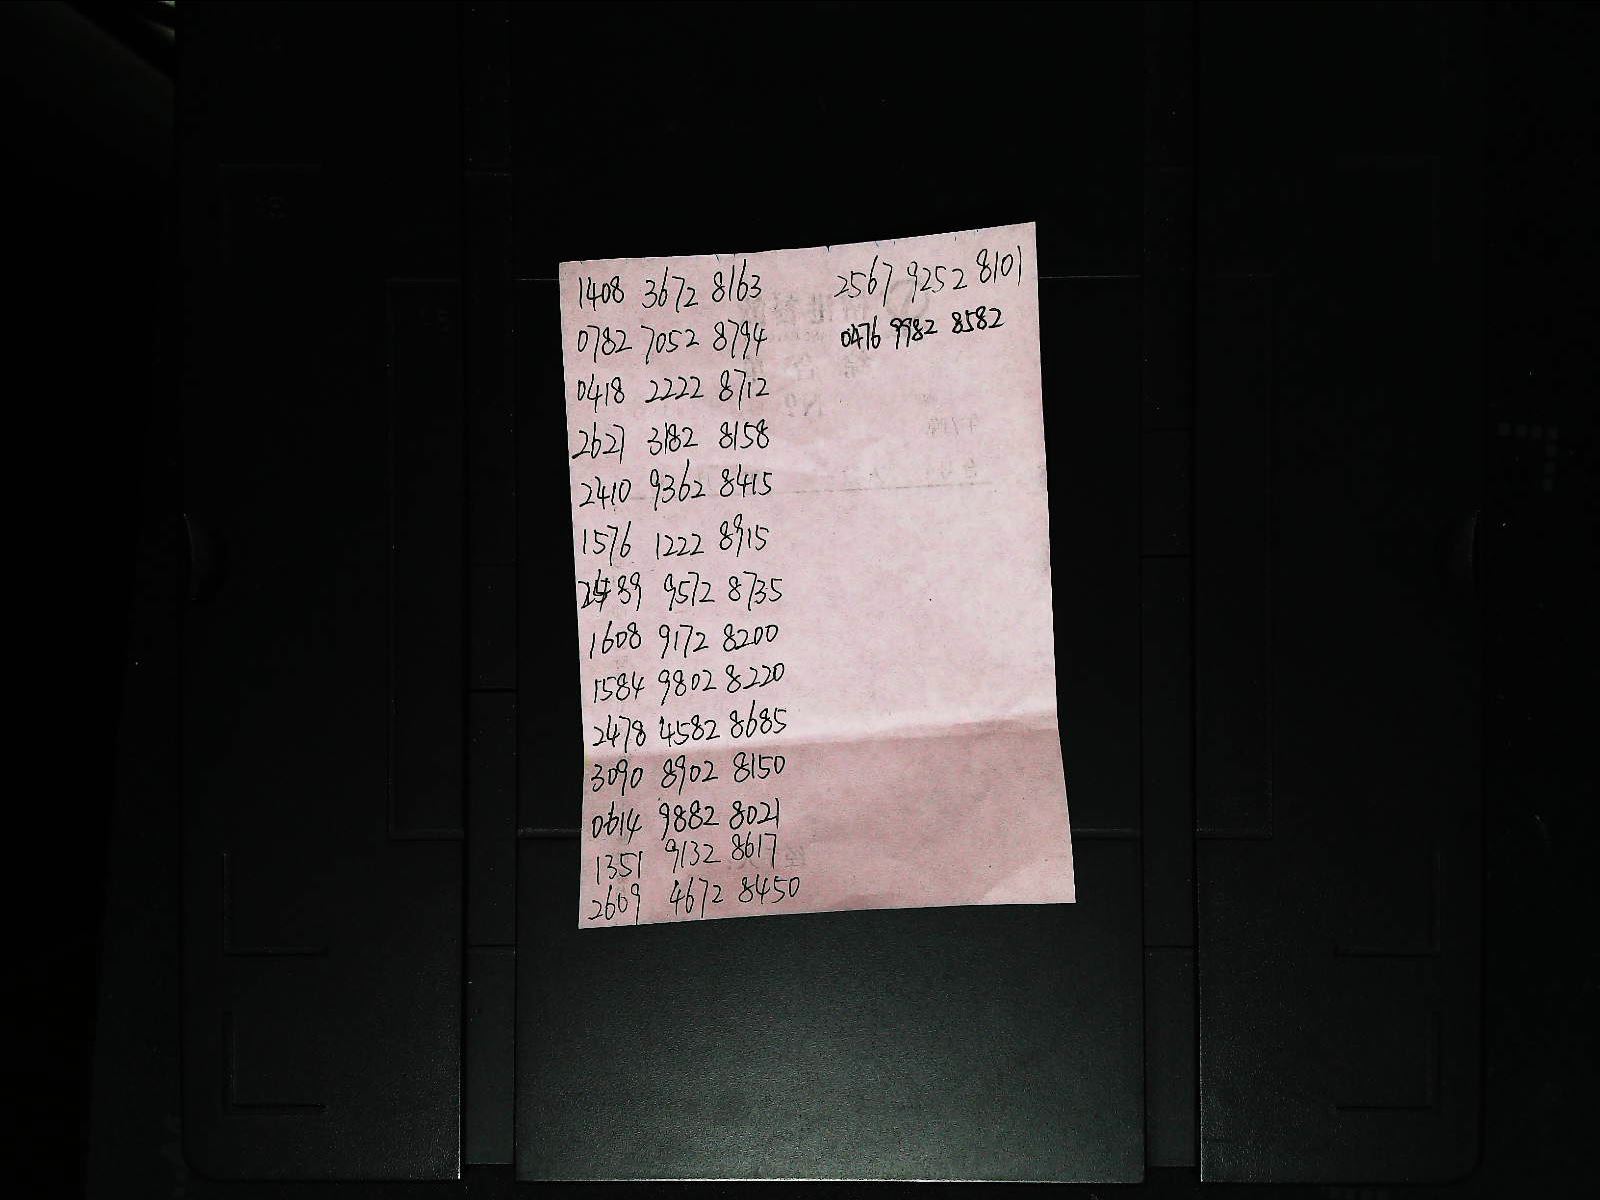 1408 3672 8163
0782 7052 8794
0418 2222 8712
2627 3182 8158
2410 9362 8415
1576 1222 8915
9572 8735
1608 9172 8200
1584 9802 8220
2478 4582 8685
3090 8902 8150
0614 9882 8021
1351 9132 8617
2609 4672 8450
2567 9252 8101
0476 9982 8582